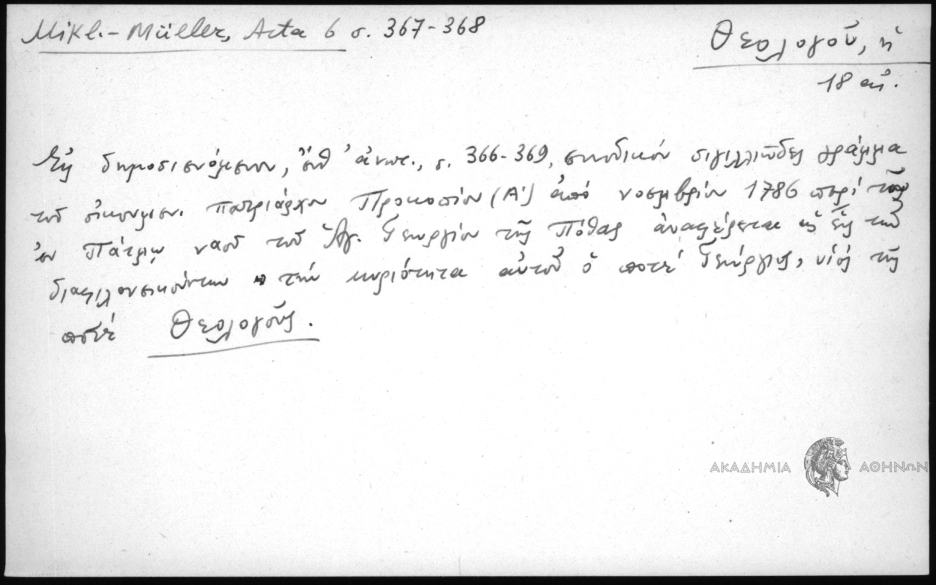 Mikl.-Müller, Acta 6 σ. 367-368
Θεολογοῦ, ἡ
18 αἰ.
Εἰς δημοσιευόμενον, ἔνθ' ἀνωτ., σ. 366-369, συνοδικόν σιγιλλιῶδες γράμμα
τοῦ οἰκουμεν. πατριάρχου Προκοπίου (Α') ἀπό νοεμβρίου 1786 περί τοῦ
ἐν Πάτμῳ ναοῦ τοῦ Ἁγ. Γεωργίου τῆς Πόθας ἀναφέρεται ὡς εἷς τῶν
διαφιλονεικούντων τήν κυριότητα αὐτοῦ ὁ ποτέ Γεώργιος, υἱός τῆς
ποτέ Θεολογοῦς.
ΑΚΑΔΗΜΙΑ ΑΘΗΝΩΝ